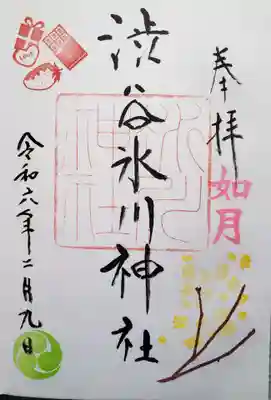 奉拝
如月
渋谷氷川神社
令和六年二月九日